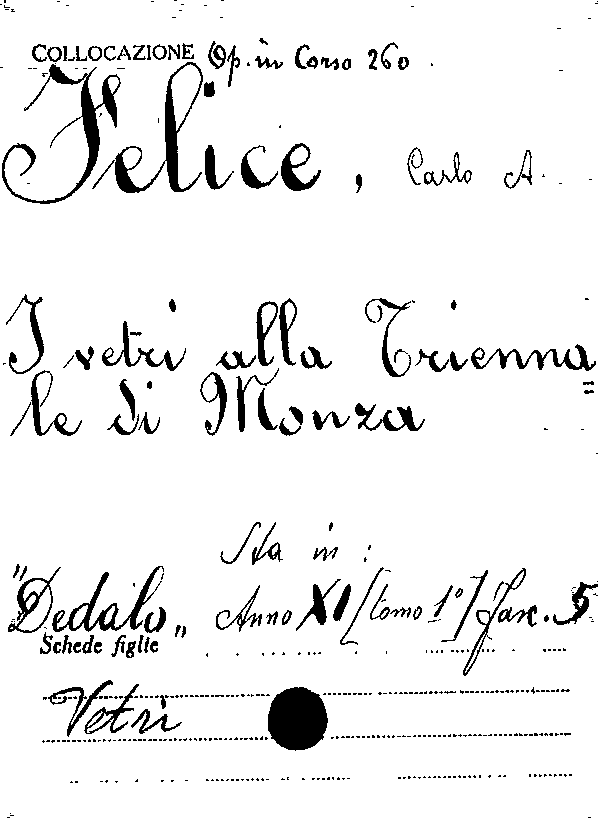 COLLOCAZIONE Op. in Corso 260
Felice, Carlo A.
I vetri alla Trienna=
le di Monza
Sta in:
"Dedalo„ Anno XI [tomo 1°] Fasc. 5
Schede figlie
Vetri